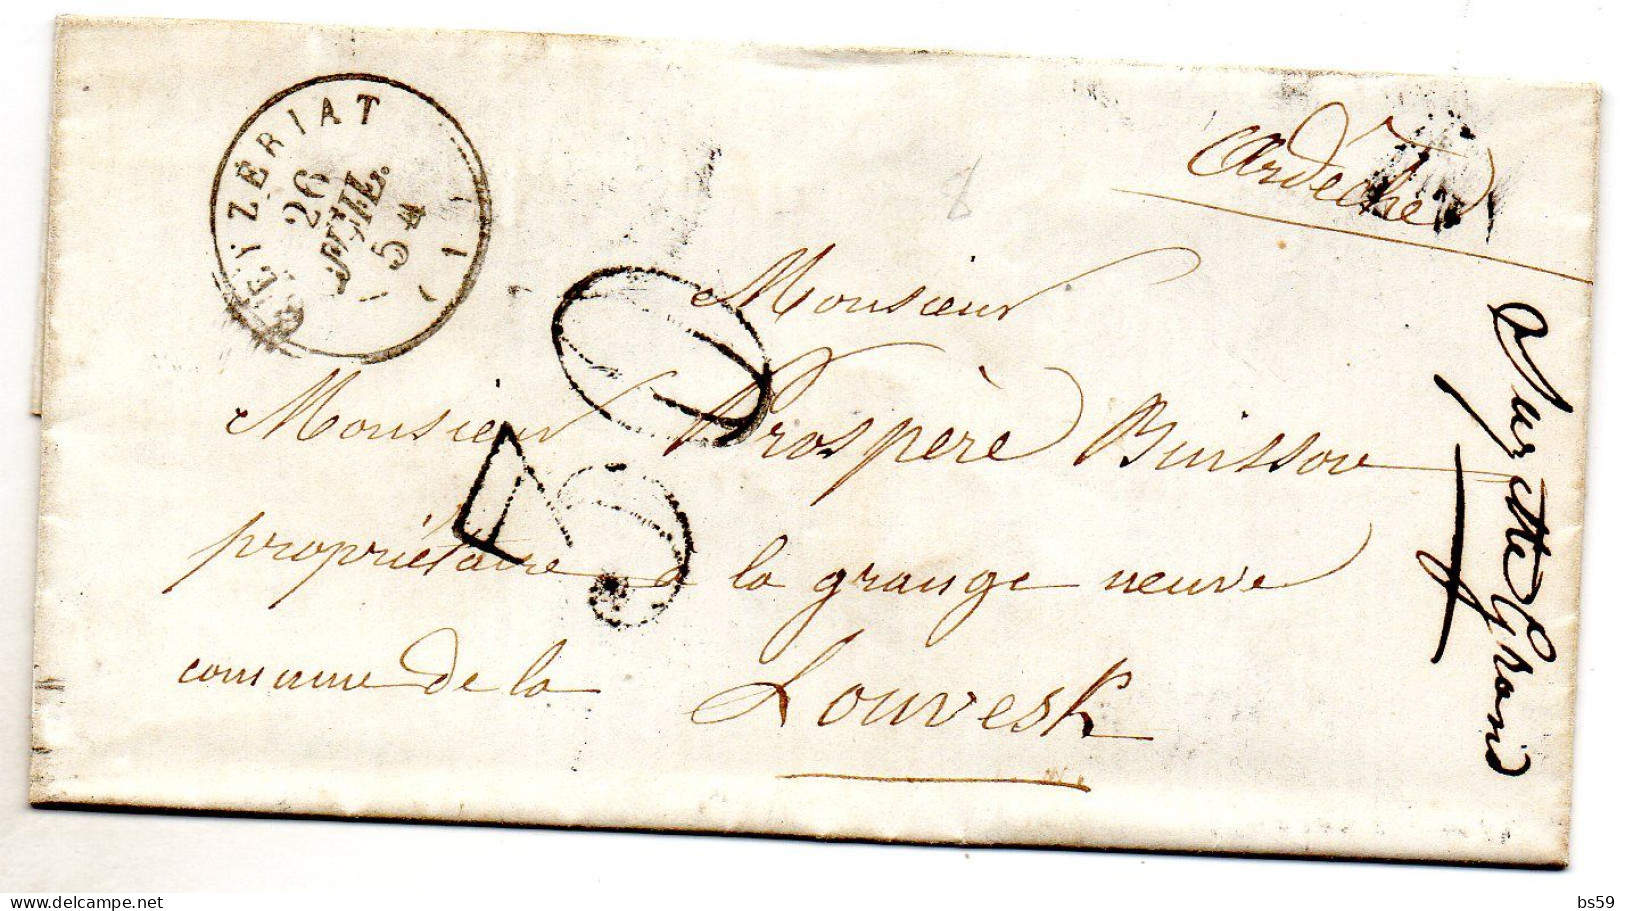 CEYZÉRIAT
26
JUIL.
54
(1)
Ardèche
Monsieur
Monsieur Prospère Buisson
propriétaire a la grange neuve
commune de la Louvesk
www.delcampe.net
bs59